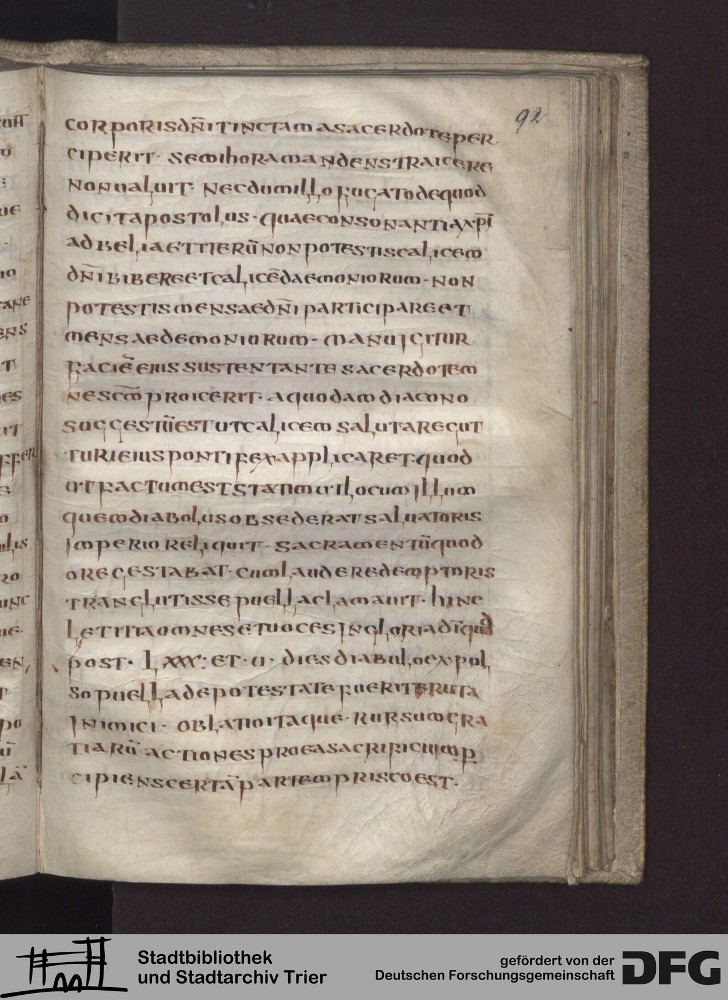 92
corporisdn̄itinctamasacerdoteper
ciperit· semihoramandenstraicere
nonualuit: necdumillofugatodequod
dicitapostolus· quaeconsonantiaxp̄i
adbeliaetiterū nonpotestiscalicem
dn̄ibibereetcalicēdaemoniorum· non
potestismensaedn̄i participareet
mensaedemoniorum· manuigitur
faciēeiussustentante sacerdotem
nescm̄proicerit· aquodamdiacono
suggestūestutcalicem salutaregut
turieiuspontifexapplicaret·quod
utfactumeststatimutlocumillum
quemdiabolusobsederatsaluatoris
imperioreliquit· sacramentūquod
oregestabat· cumlauderedemptoris
tranglutissepuellaclamauit· hinc
letitiaomnesetuocesingloriadīquod
post· lxxx: et· u· diesdiabuloexpul
sopuelladepotestatefueriteruta
inimici· oblatioitaque· rursumgra
tiarū actionesproeasacrificiump̱
cipienscertāpartempriscoest·
Stadtbibliothek
und Stadtarchiv Trier
gefördert von der
Deutschen Forschungsgemeinschaft
DFG